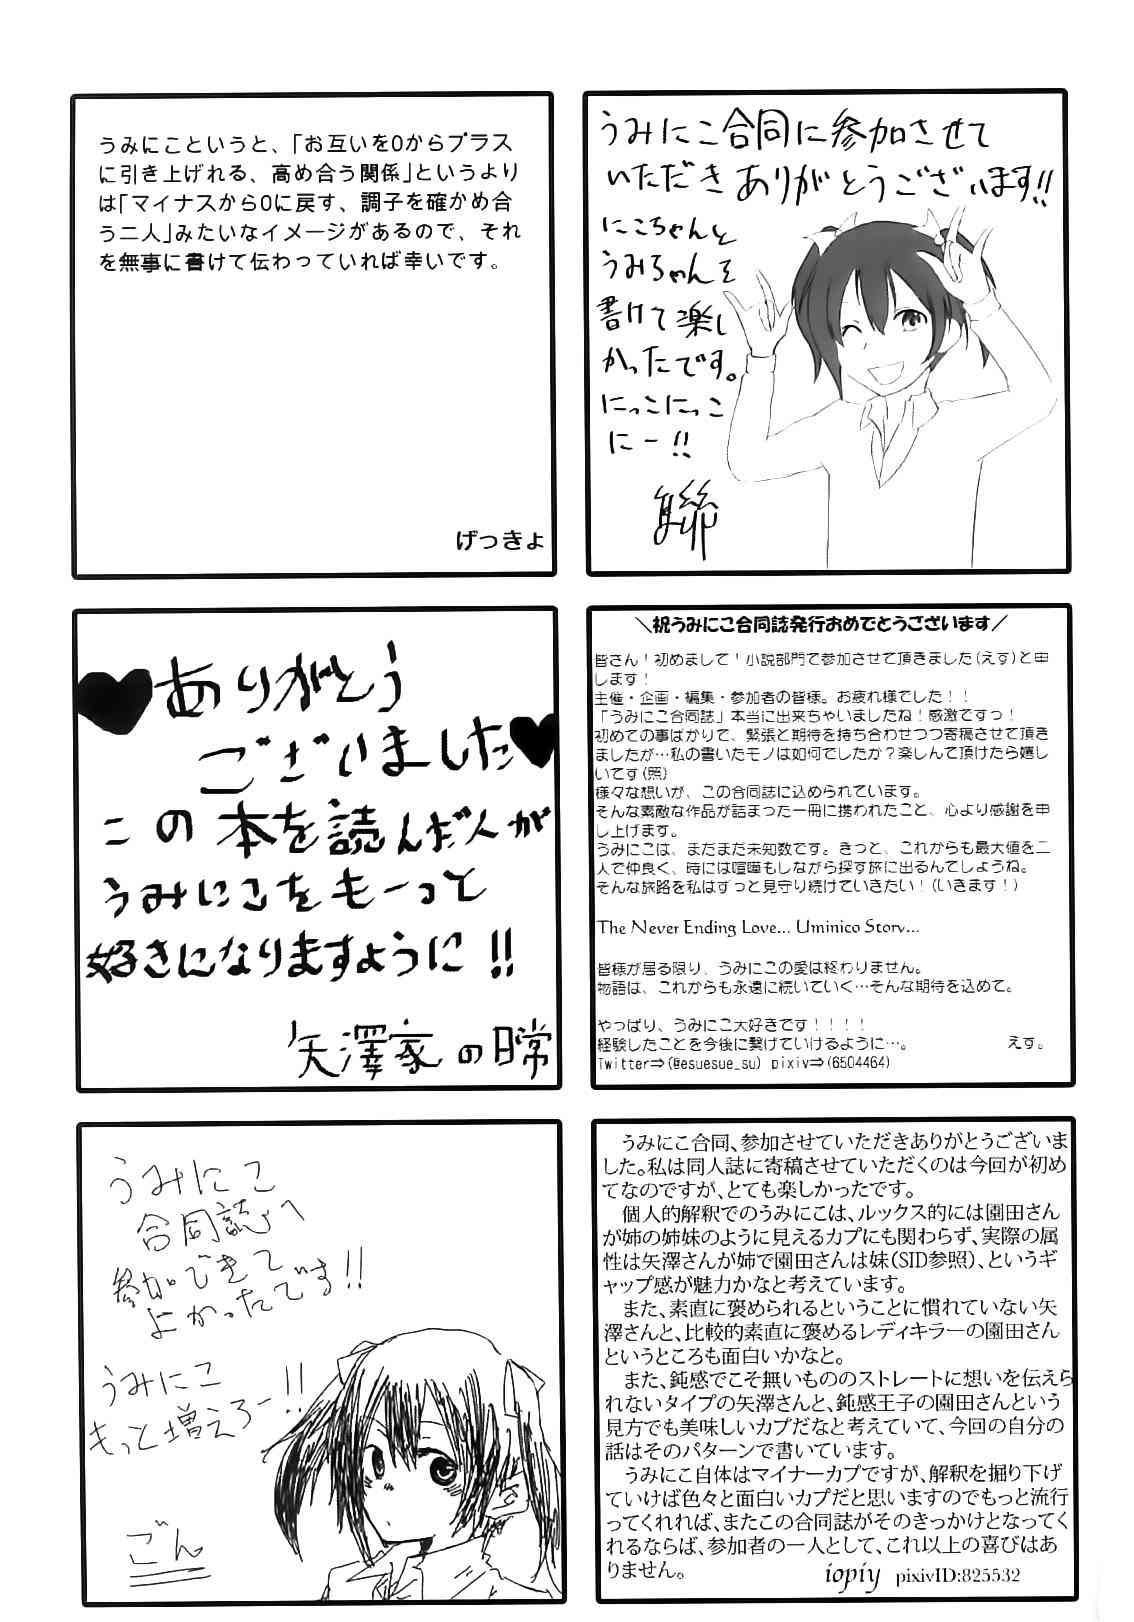 うみにこというと、「お互いを0からプラス
に引き上げれる、高め合う関係」というより
は「マイナスから0に戻す、調子を確かめ合
う二人」みたいなイメージがあるので、それ
を無事に書けて伝わっていれば幸いです。
げっきょ
うみにこ合同に参加させて
いただきありがとうございます!!
にこちゃんと
うみちゃんを
書けて楽し
かったです。
にっこにっこ
にー!!
ありがとう
ございました
この本を読んだ人が
うみにこをもーっと
好きになりますように!!
矢澤家の日常
＼祝うみにこ合同誌発行おめでとうございます／
皆さん！初めまして！小説部門で参加させて頂きました(えす)と申
します！
主催・企画・編集・参加者の皆様。お疲れ様でした！！
「うみにこ合同誌」本当に出来ちゃいましたね！感激ですっ！
初めての事ばかりで、緊張と期待を持ち合わせつつ寄稿させて頂き
ましたが…私の書いたモノは如何でしたか？楽しんで頂けたら嬉し
いです(照)
様々な想いが、この合同誌に込められています。
そんな素敵な作品が詰まった一冊に携われたこと、心より感謝を申
し上げます。
うみにこは、まだまだ未知数です。きっと、これからも最大値を二
人で仲良く、時には喧嘩もしながら探す旅に出るんでしょうね。
そんな旅路を私はずっと見守り続けていきたい！(いきます！)
The Never Ending Love... Uminico Story...
皆様が居る限り、うみにこの愛は終わりません。
物語は、これからも永遠に続いていく…そんな期待を込めて。
やっぱり、うみにこ大好きです！！！！
経験したことを今後に繋げていけるように…。 えす。
Twitter⇒(@esuesue_su) pixiv⇒(6504464)
うみにこ
合同誌へ
参加できて
よかったです!!
うみにこ
もっと増えろー!!
ごん
うみにこ合同、参加させていただきありがとうございま
した。私は同人誌に寄稿させていただくのは今回が初め
てなのですが、とても楽しかったです。
個人的解釈でのうみにこは、ルックス的には園田さん
が姉の姉妹のように見えるカプにも関わらず、実際の属
性は矢澤さんが姉で園田さんは妹(SID参照)、というギ
ャップ感が魅力かなと考えています。
また、素直に褒められるということに慣れていない矢
澤さんと、比較的素直に褒めるレディキラーの園田さん
というところも面白いかなと。
また、鈍感でこそ無いもののストレートに想いを伝えら
れないタイプの矢澤さんと、鈍感王子の園田さんという
見方でも美味しいカプだなと考えていて、今回の自分の
話はそのパターンで書いています。
うみにこ自体はマイナーカプですが、解釈を掘り下げ
ていけば色々と面白いカプだと思いますのでもっと流行
ってくれれば、またこの合同誌がそのきっかけとなってく
れるならば、参加者の一人として、これ以上の喜びはあ
りません。
iopiy pixivID:825532